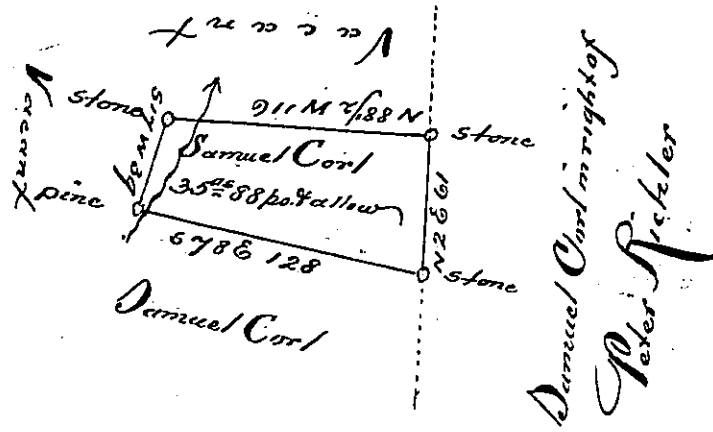 Vacant
Vacant
stone
N 88 1/2 W 116
stone
S 17 W 39
Samuel Corl
35ac 88 po & allow
pine
N 2 E 61
S 78 E 128
stone
Samuel Corl
Samuel Corl in right of
Peter Richler